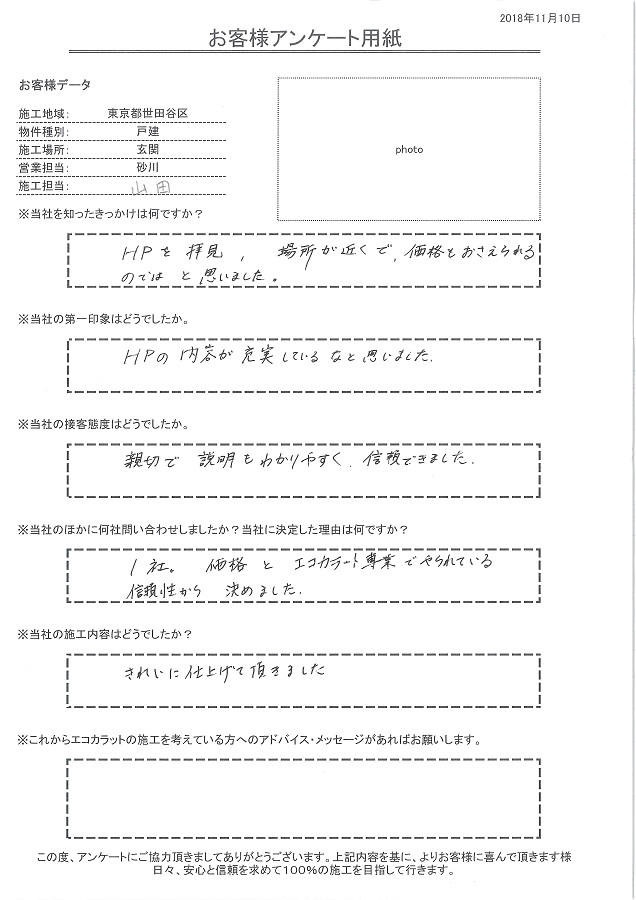 2018年11月10日
お客様アンケート用紙
お客様データ
施工地域： 東京都世田谷区
物件種別： 戸建
施工場所： 玄関
営業担当： 砂川
施工担当： 山田
photo
※当社を知ったきっかけは何ですか？
HPを拝見、場所が近くで、価格もおさえられる
のでは と思いました。
※当社の第一印象はどうでしたか。
HPの内容が充実しているなと思いました。
※当社の接客態度はどうでしたか。
親切で 説明もわかりやすく、信頼できました。
※当社のほかに何社問い合わせしましたか？当社に決定した理由は何ですか？
1社。 価格と エコカラット専業でやられている
信頼性から 決めました。
※当社の施工内容はどうでしたか？
きれいに仕上げて頂きました
※これからエコカラットの施工を考えている方へのアドバイス・メッセージがあればお願いします。
この度、アンケートにご協力頂きましてありがとうございます。上記内容を基に、よりお客様に喜んで頂きます様
日々、安心と信頼を求めて100％の施工を目指して行きます。